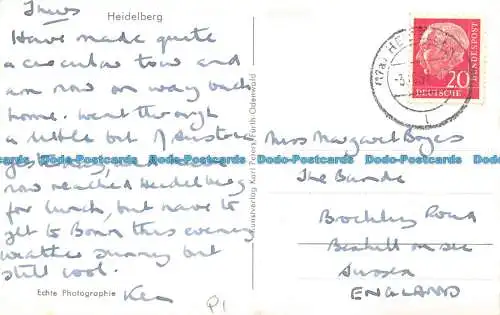 Heidelberg
Thurs
Have made quite
a circular tour and
am now on way back
home. Went through
a little bit of Austria
yesterday, and have
now reached Heidelberg
for lunch, but have to
get to Bonn this evening
weather sunny but
still cool.
Ken
Echte Photographie
P1
Kunstverlag Karl Peters, Fürth Odenwald
20
DEUTSCHE
BUNDESPOST
Miss Margaret
The
Road
Bexhill on sea
Sussex
ENGLAND
Dodo-Postcards Dodo-Postcards Dodo-Postcards Dodo-Postcards Dodo-Postcards